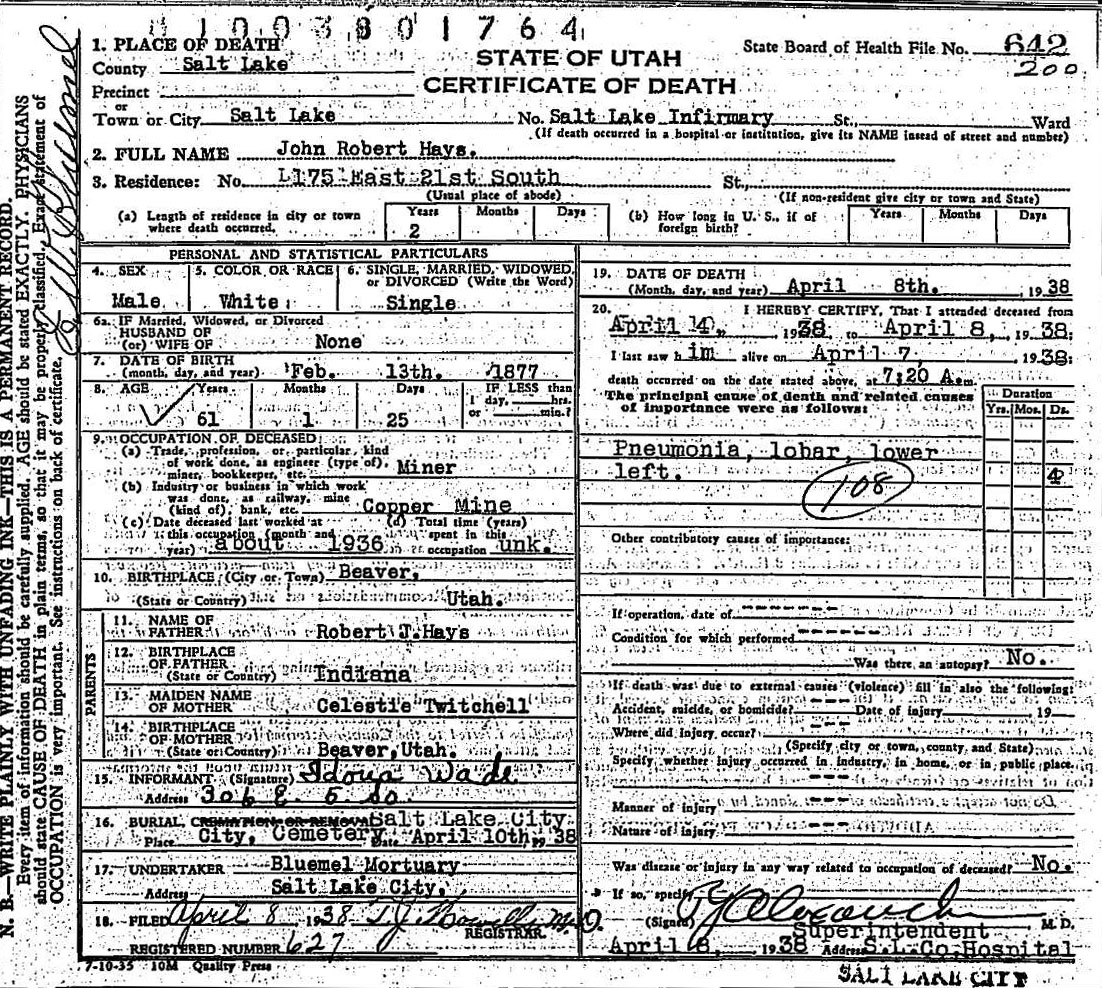 1003801764
STATE OF UTAH
CERTIFICATE OF DEATH
State Board of Health File No. 642
200
1. PLACE OF DEATH
County Salt Lake
Precinct
or
Town or City Salt Lake No. Salt Lake Infirmary St., Ward
(If death occurred in a hospital or institution, give its NAME insead of street and number)
2. FULL NAME John Robert Hays.
3. Residence: No. 1175 East 21st South St.,
(Usual place of abode) (If non-resident give city or town and State)
(a) Length of residence in city or town where death occurred. Years 2 Months Days
(b) How long in U. S., if of foreign birth? Years Months Days
PERSONAL AND STATISTICAL PARTICULARS
4. SEX Male
5. COLOR OR RACE White
6. SINGLE, MARRIED, WIDOWED, or DIVORCED (Write the Word) Single
6a. IF Married, Widowed, or Divorced
HUSBAND OF
(or) WIFE OF None
7. DATE OF BIRTH
(month, day, and year) Feb. 13th. 1877
8. AGE Years 61 Months 1 Days 25 IF LESS than 1 day, hrs. or min.?
9. OCCUPATION OF DECEASED
(a) Trade, profession, or particular kind
of work done, as engineer (type of),
miner, bookkeeper, etc. Miner
(b) Industry or business in which work
was done, as railway, mine
(kind of), bank, etc. Copper Mine
(c) Date deceased last worked at
this occupation (month and
year) about 1936
(d) Total time (years)
spent in this
occupation unk.
10. BIRTHPLACE (City or Town) Beaver,
(State or Country) Utah.
PARENTS
11. NAME OF
FATHER Robert J. Hays
12. BIRTHPLACE
OF FATHER
(State or Country) Indiana
13. MAIDEN NAME
OF MOTHER Celestie Twitchell
14. BIRTHPLACE
OF MOTHER
(State or Country) Beaver, Utah.
15. INFORMANT (Signature) Idona Wade
Address 306 E. 5 So.
16. BURIAL, CREMATION OR REMOVAL Salt Lake City
Place City, Cemetery Date April 10th, 1938
17. UNDERTAKER Bluemel Mortuary
Address Salt Lake City,
18. FILED April 8 1938 T.J. Howells M.D.
REGISTRAR.
REGISTERED NUMBER 627
7-10-35 10M Quality Press
19. DATE OF DEATH
(Month, day, and year) April 8th. , 1938
20. I HEREBY CERTIFY, That I attended deceased from
April 4, 1938 to April 8, 1938:
I last saw him alive on April 7, 1938:
death occurred on the date stated above, at 7:20 A.m.
The principal cause of death and related causes
of importance were as follows:
Duration
Yrs. Mos. Ds.
Pneumonia, lobar, lower
left. 4
108
Other contributory causes of importance:
If operation, date of -------
Condition for which performed ------
Was there an autopsy? No.
If death was due to external causes (violence) fill in also the following:
Accident, suicide, or homicide? --- Date of injury 19
Where did injury occur? ---
(Specify city or town, county, and State)
Specify whether injury occurred in industry, in home, or in public place.
---
Manner of injury ---
Nature of injury ---
Was disease or injury in any way related to occupation of deceased? No.
If so, specify
(Signed) M. D.
Superintendent
April 8, 1938 Address S.L. Co. Hospital
SALT LAKE CITY
N. B.—WRITE PLAINLY WITH UNFADING INK—THIS IS A PERMANENT RECORD.
Every item of information should be carefully supplied. AGE should be stated EXACTLY. PHYSICIANS
should state CAUSE OF DEATH in plain terms, so that it may be properly classified. Exact statement of
OCCUPATION is very important. See instructions on back of certificate.